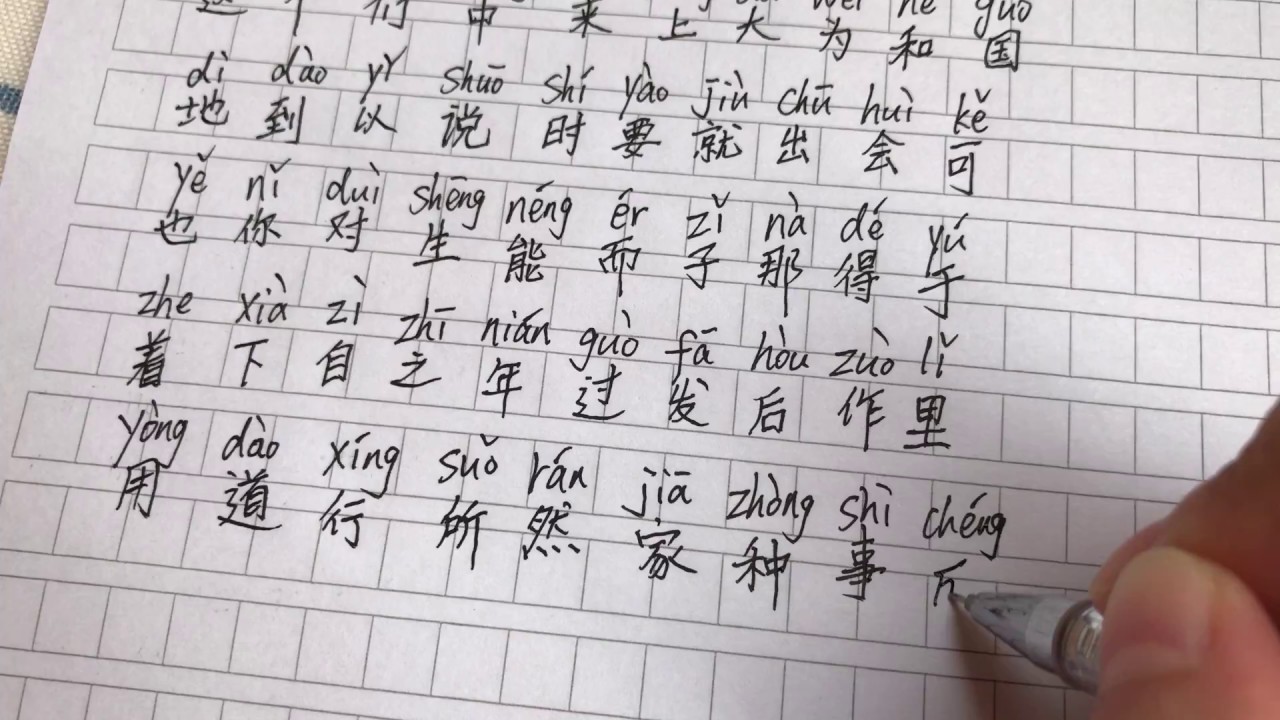 wèi hé guó
这 个 们 中 来 上 大 为 和 国
dì dào yǐ shuō shí yào jiù chū huì kě
地 到 以 说 时 要 就 出 会 可
yě nǐ duì shēng néng ér zǐ nà dé yú
也 你 对 生 能 而 子 那 得 于
zhe xià zì zhī nián guò fā hòu zuò lǐ
着 下 自 之 年 过 发 后 作 里
yòng dào xíng suǒ rán jiā zhòng shì chéng
用 道 行 所 然 家 种 事